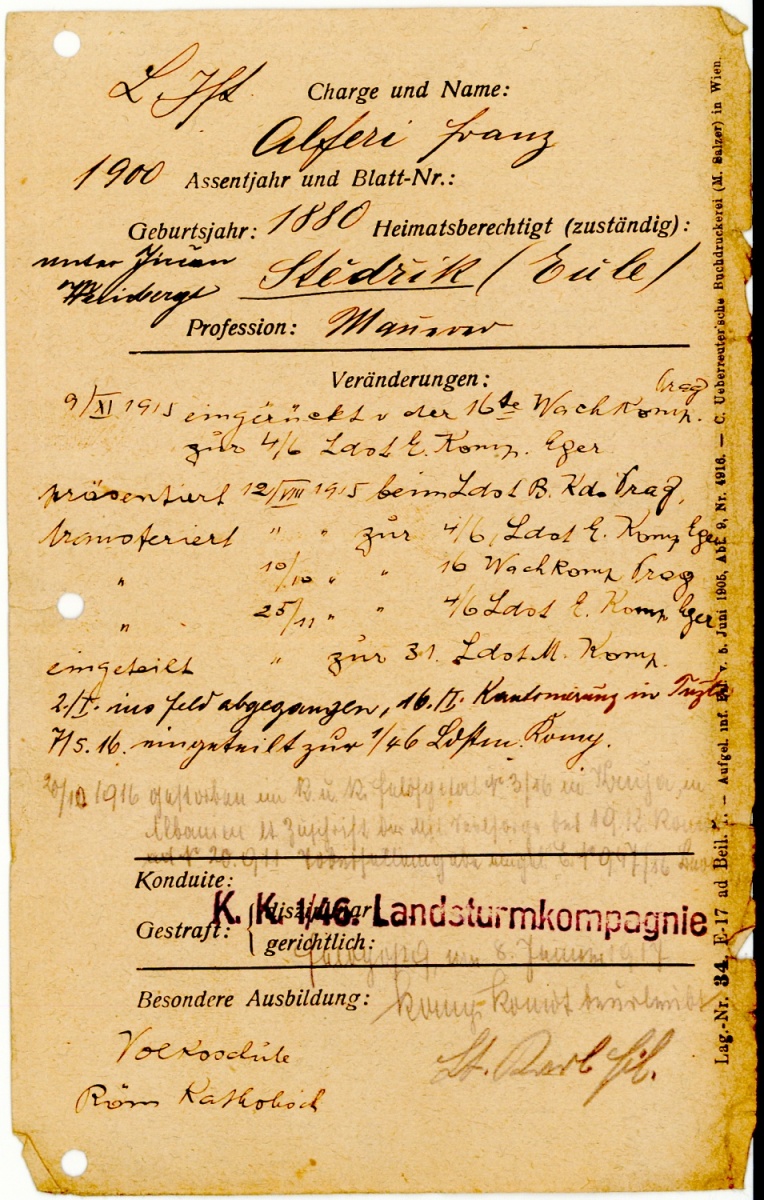 L. Jft. Charge und Name:
Alferi Franz
1900 Assentjahr und Blatt-Nr.:
Geburtsjahr: 1880 Heimatsberechtigt (zuständig):
unter
Weinberge Štědřik (Eule)
Profession: Maurer
Veränderungen:
9/XI 1915 eingerückt v der 16te Wachkomp. Prag
zur 4/6 Ldst E. Komp. Eger
präsentiert 12/VIII 1915 beim Ldst B. Kdo Prag,
transferiert " " zur 4/6 Ldst E. Komp Eger
" 10/10 " " 16 Wachkomp Prag
" 25/11 " " 4/6 Ldst E. Komp Eger
eingeteilt " zur 31. Ldst M. Komp.
2./I. ins Feld abgegangen, 16./II. Kantonierung in Tuzla
7/5. 16. eingeteilt zur 1/46 Ldstm. Komp.
20/10 1916 gestorben im K. u. k. Feldspital № 3/16 in Kruja, in
Albanien lt Zuschrift
Konduite:
Gestraft: { disziplinar:
gerichtlich:
K. K. 1/46. Landsturmkompagnie
Feldpost, am 8. Jänner 1917
Besondere Ausbildung: Komp. Komdt beurlaubt
Volksschule
Röm Katholisch
Lag.-Nr. 34. E-17 ad Beil. 7. — Aufgel. inf. v. 5. Juni 1905, Abt. 9, Nr. 4916. — C. Ueberreuter'sche Buchdruckerei (M. Salzer) in Wien.